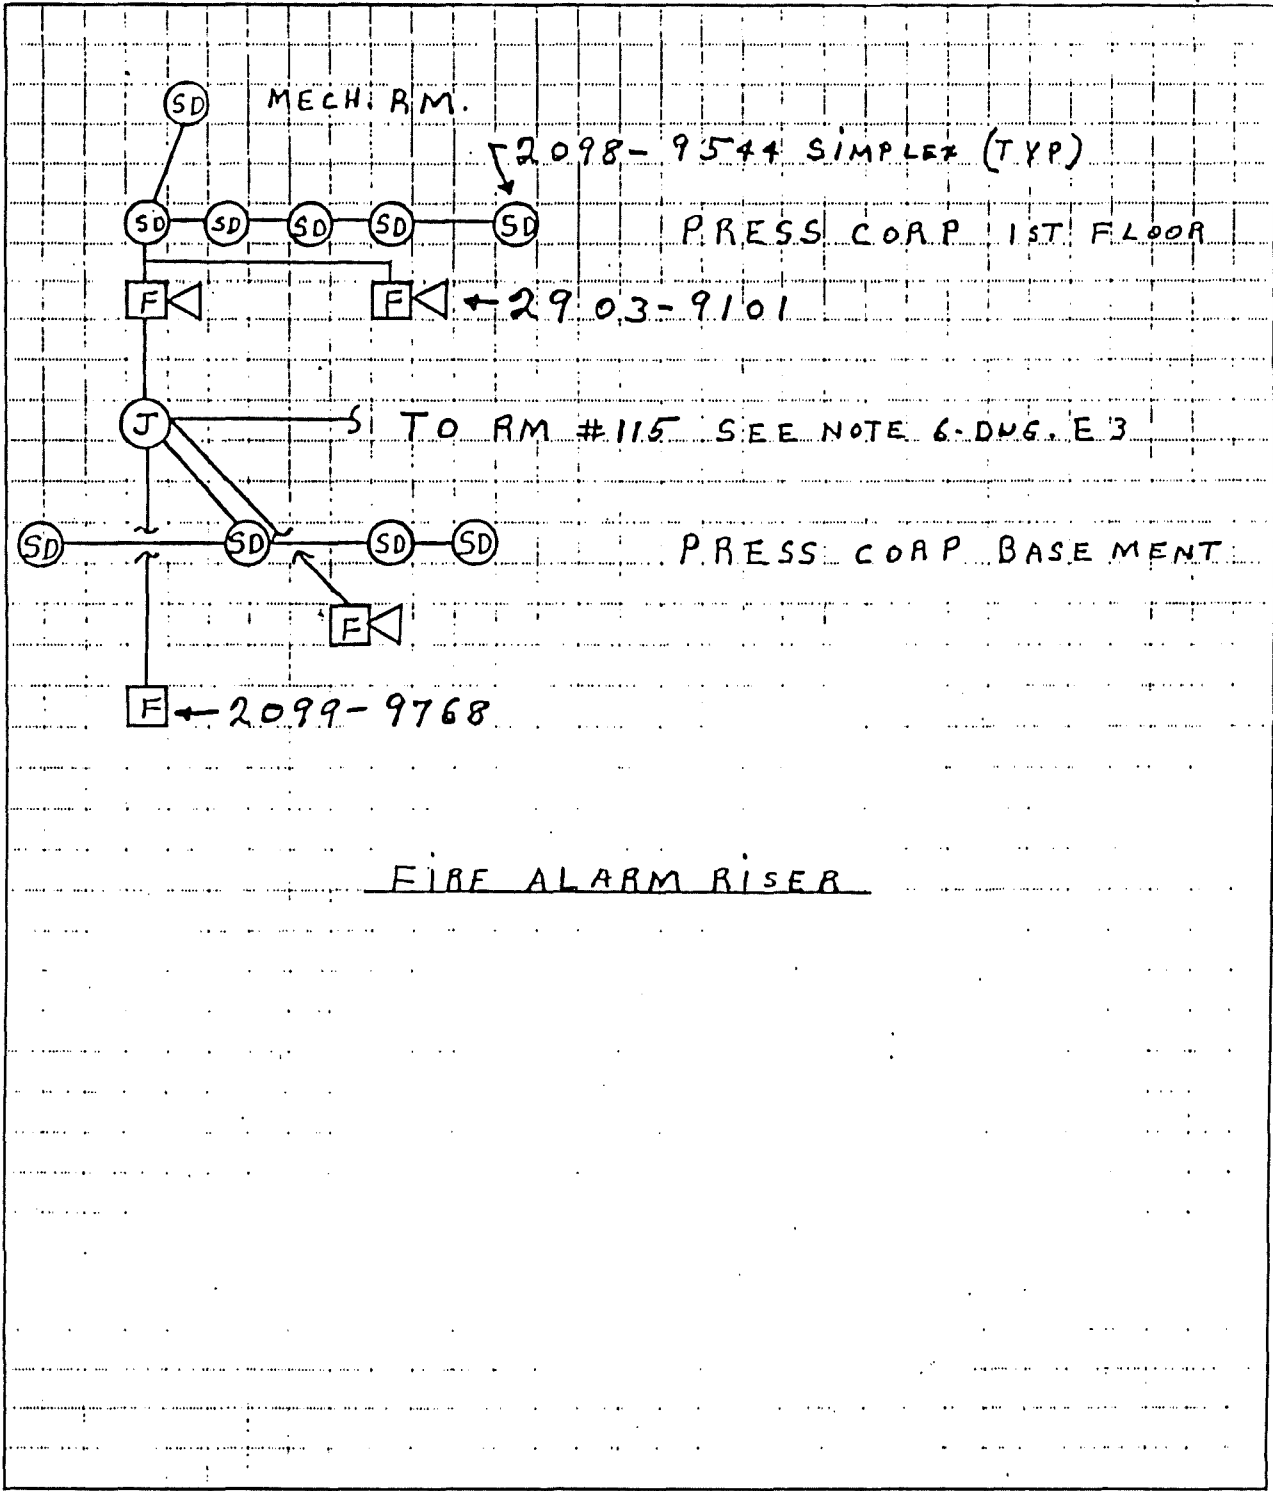 SD MECH. RM.
2098-9544 SIMPLEX (TYP)
SD SD SD SD SD PRESS CORP 1ST FLOOR
F F 2903-9101
J TO RM #115 SEE NOTE 6-DWG. E3
SD SD SD SD PRESS CORP BASEMENT
F
F 2099-9768
FIRE ALARM RISER